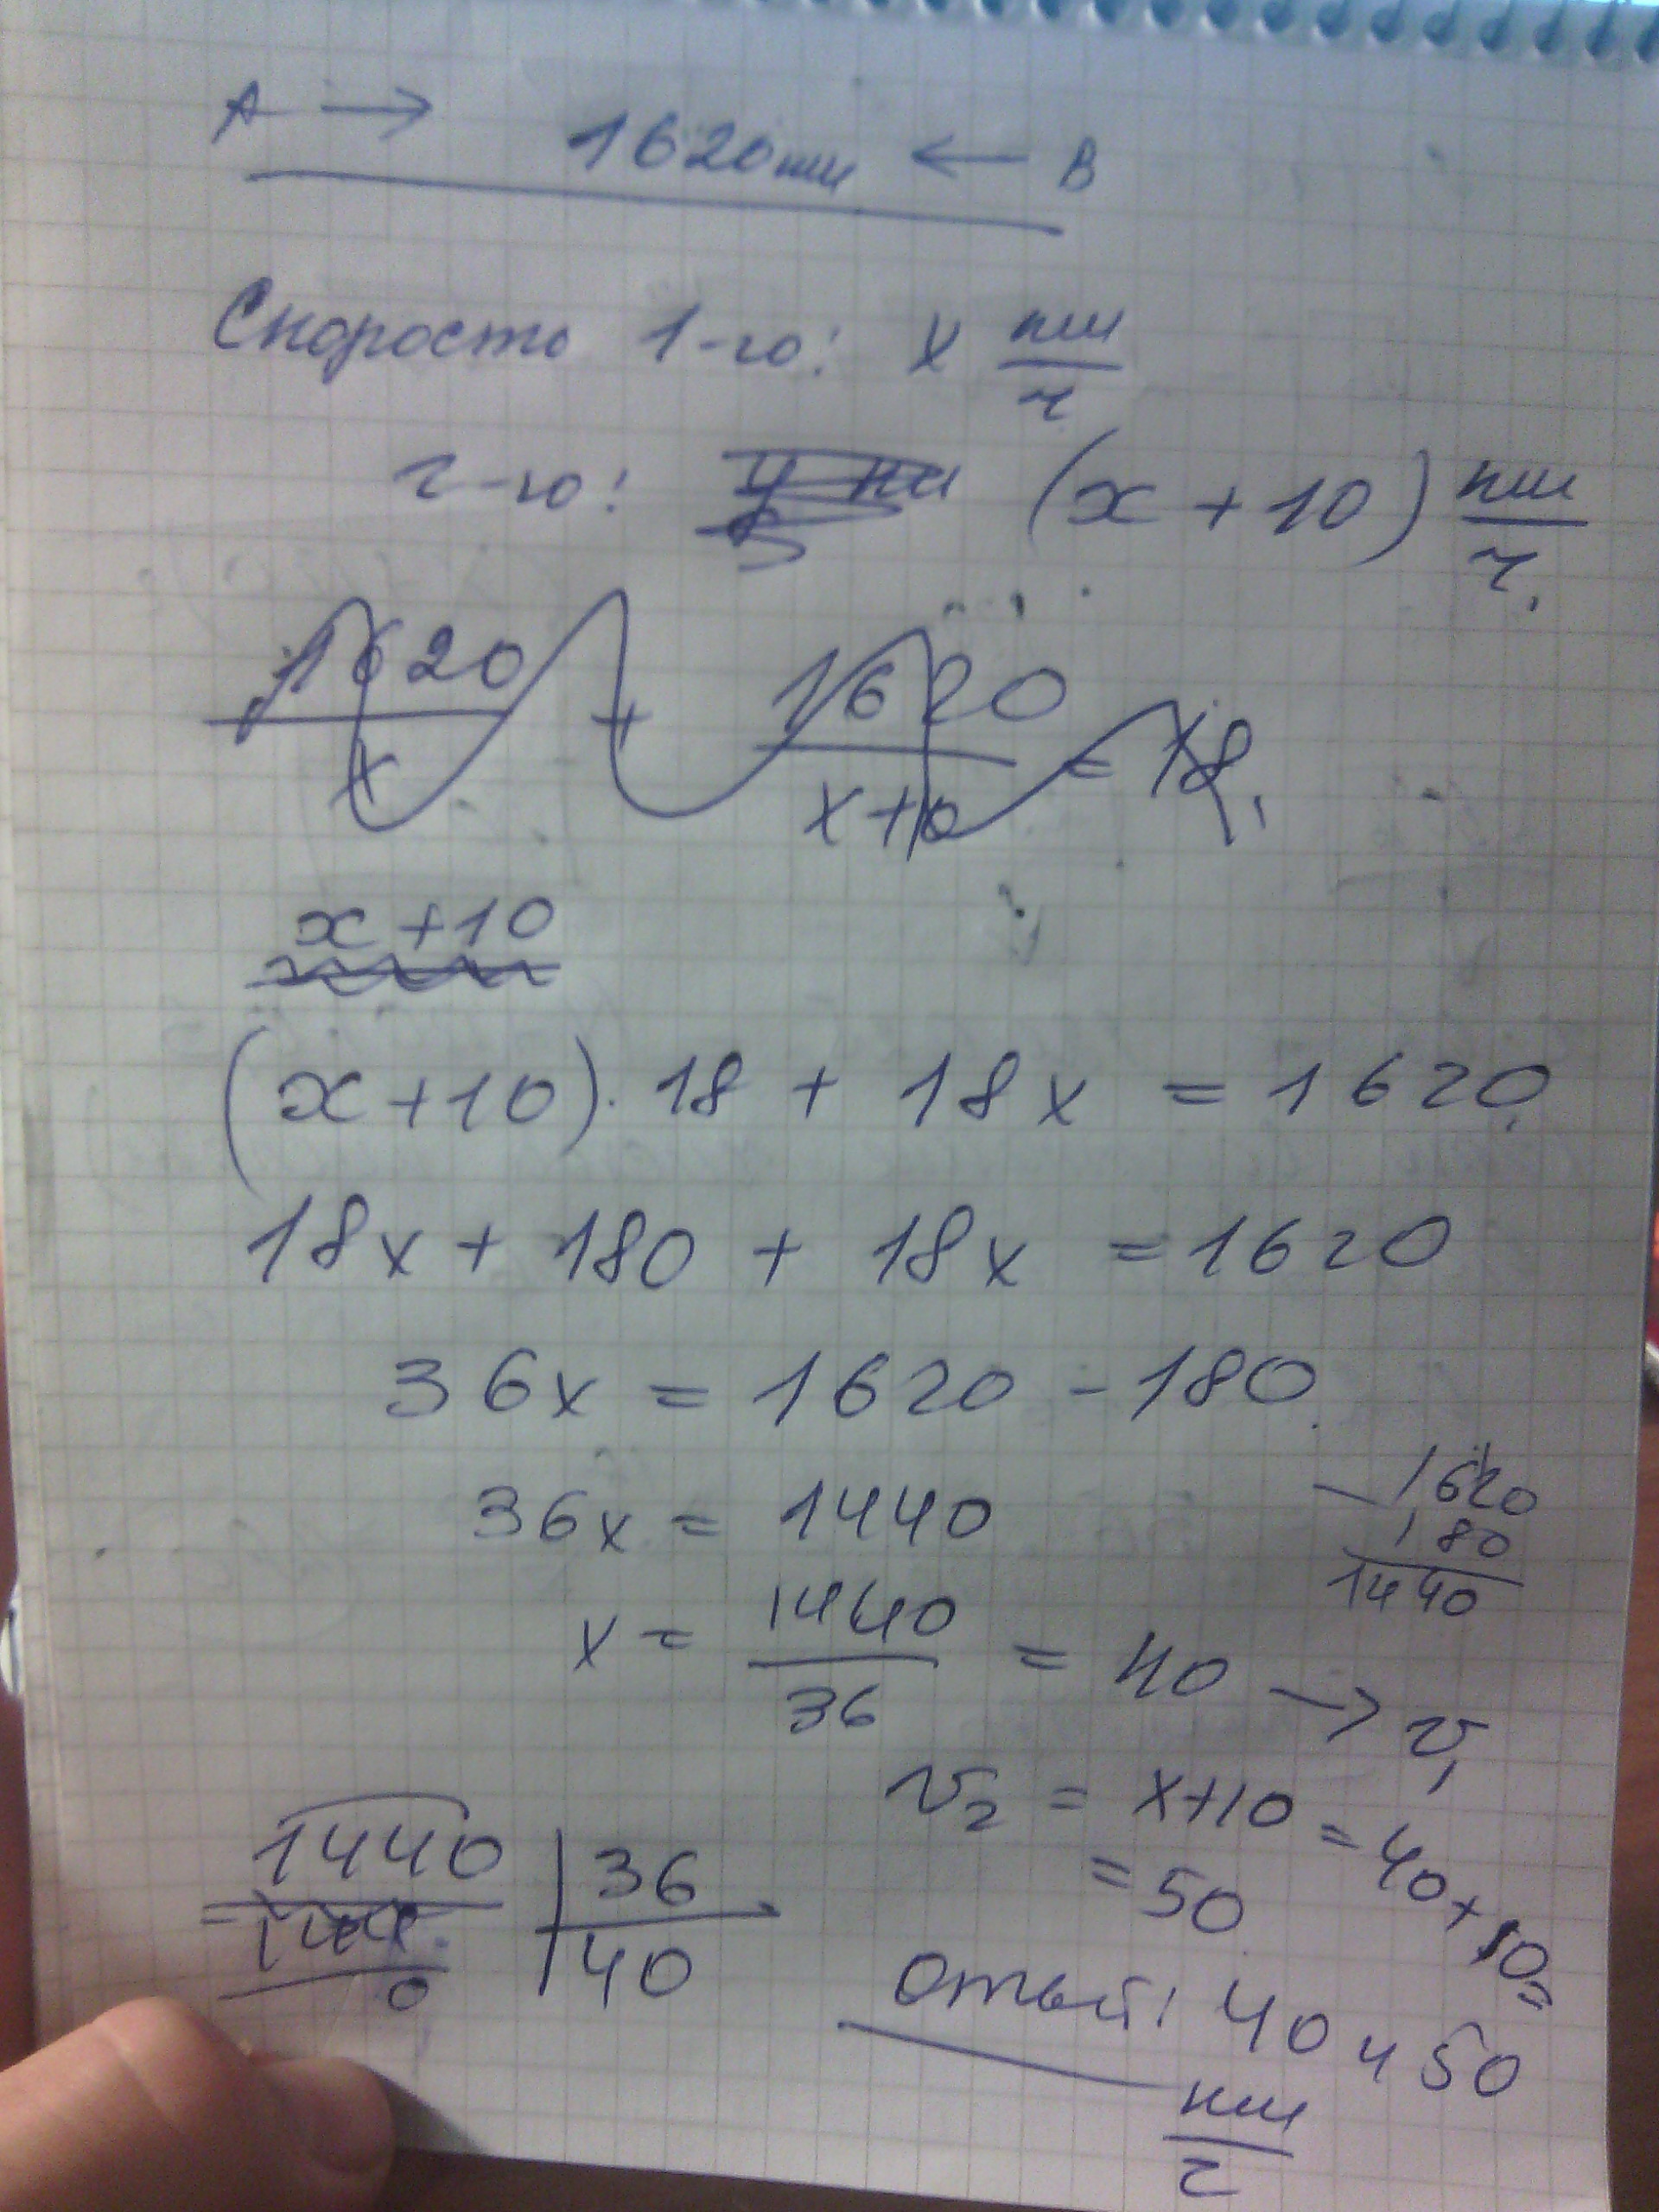 A → 1620 км ← B
Скорость 1-го: x км/ч
2-го: (x + 10) км/ч.
1620/x + 1620/x+10 = 18.
x + 10
(x + 10) · 18 + 18x = 1620.
18x + 180 + 18x = 1620
36x = 1620 - 180.
36x = 1440
- 1620
180
1440
x = 1440/36 = 40 → v₁
v₂ = x+10 = 40 + 10 =
= 50.
1440 | 36
- 144 | 40
0
Ответ: 40 и 50
км/ч